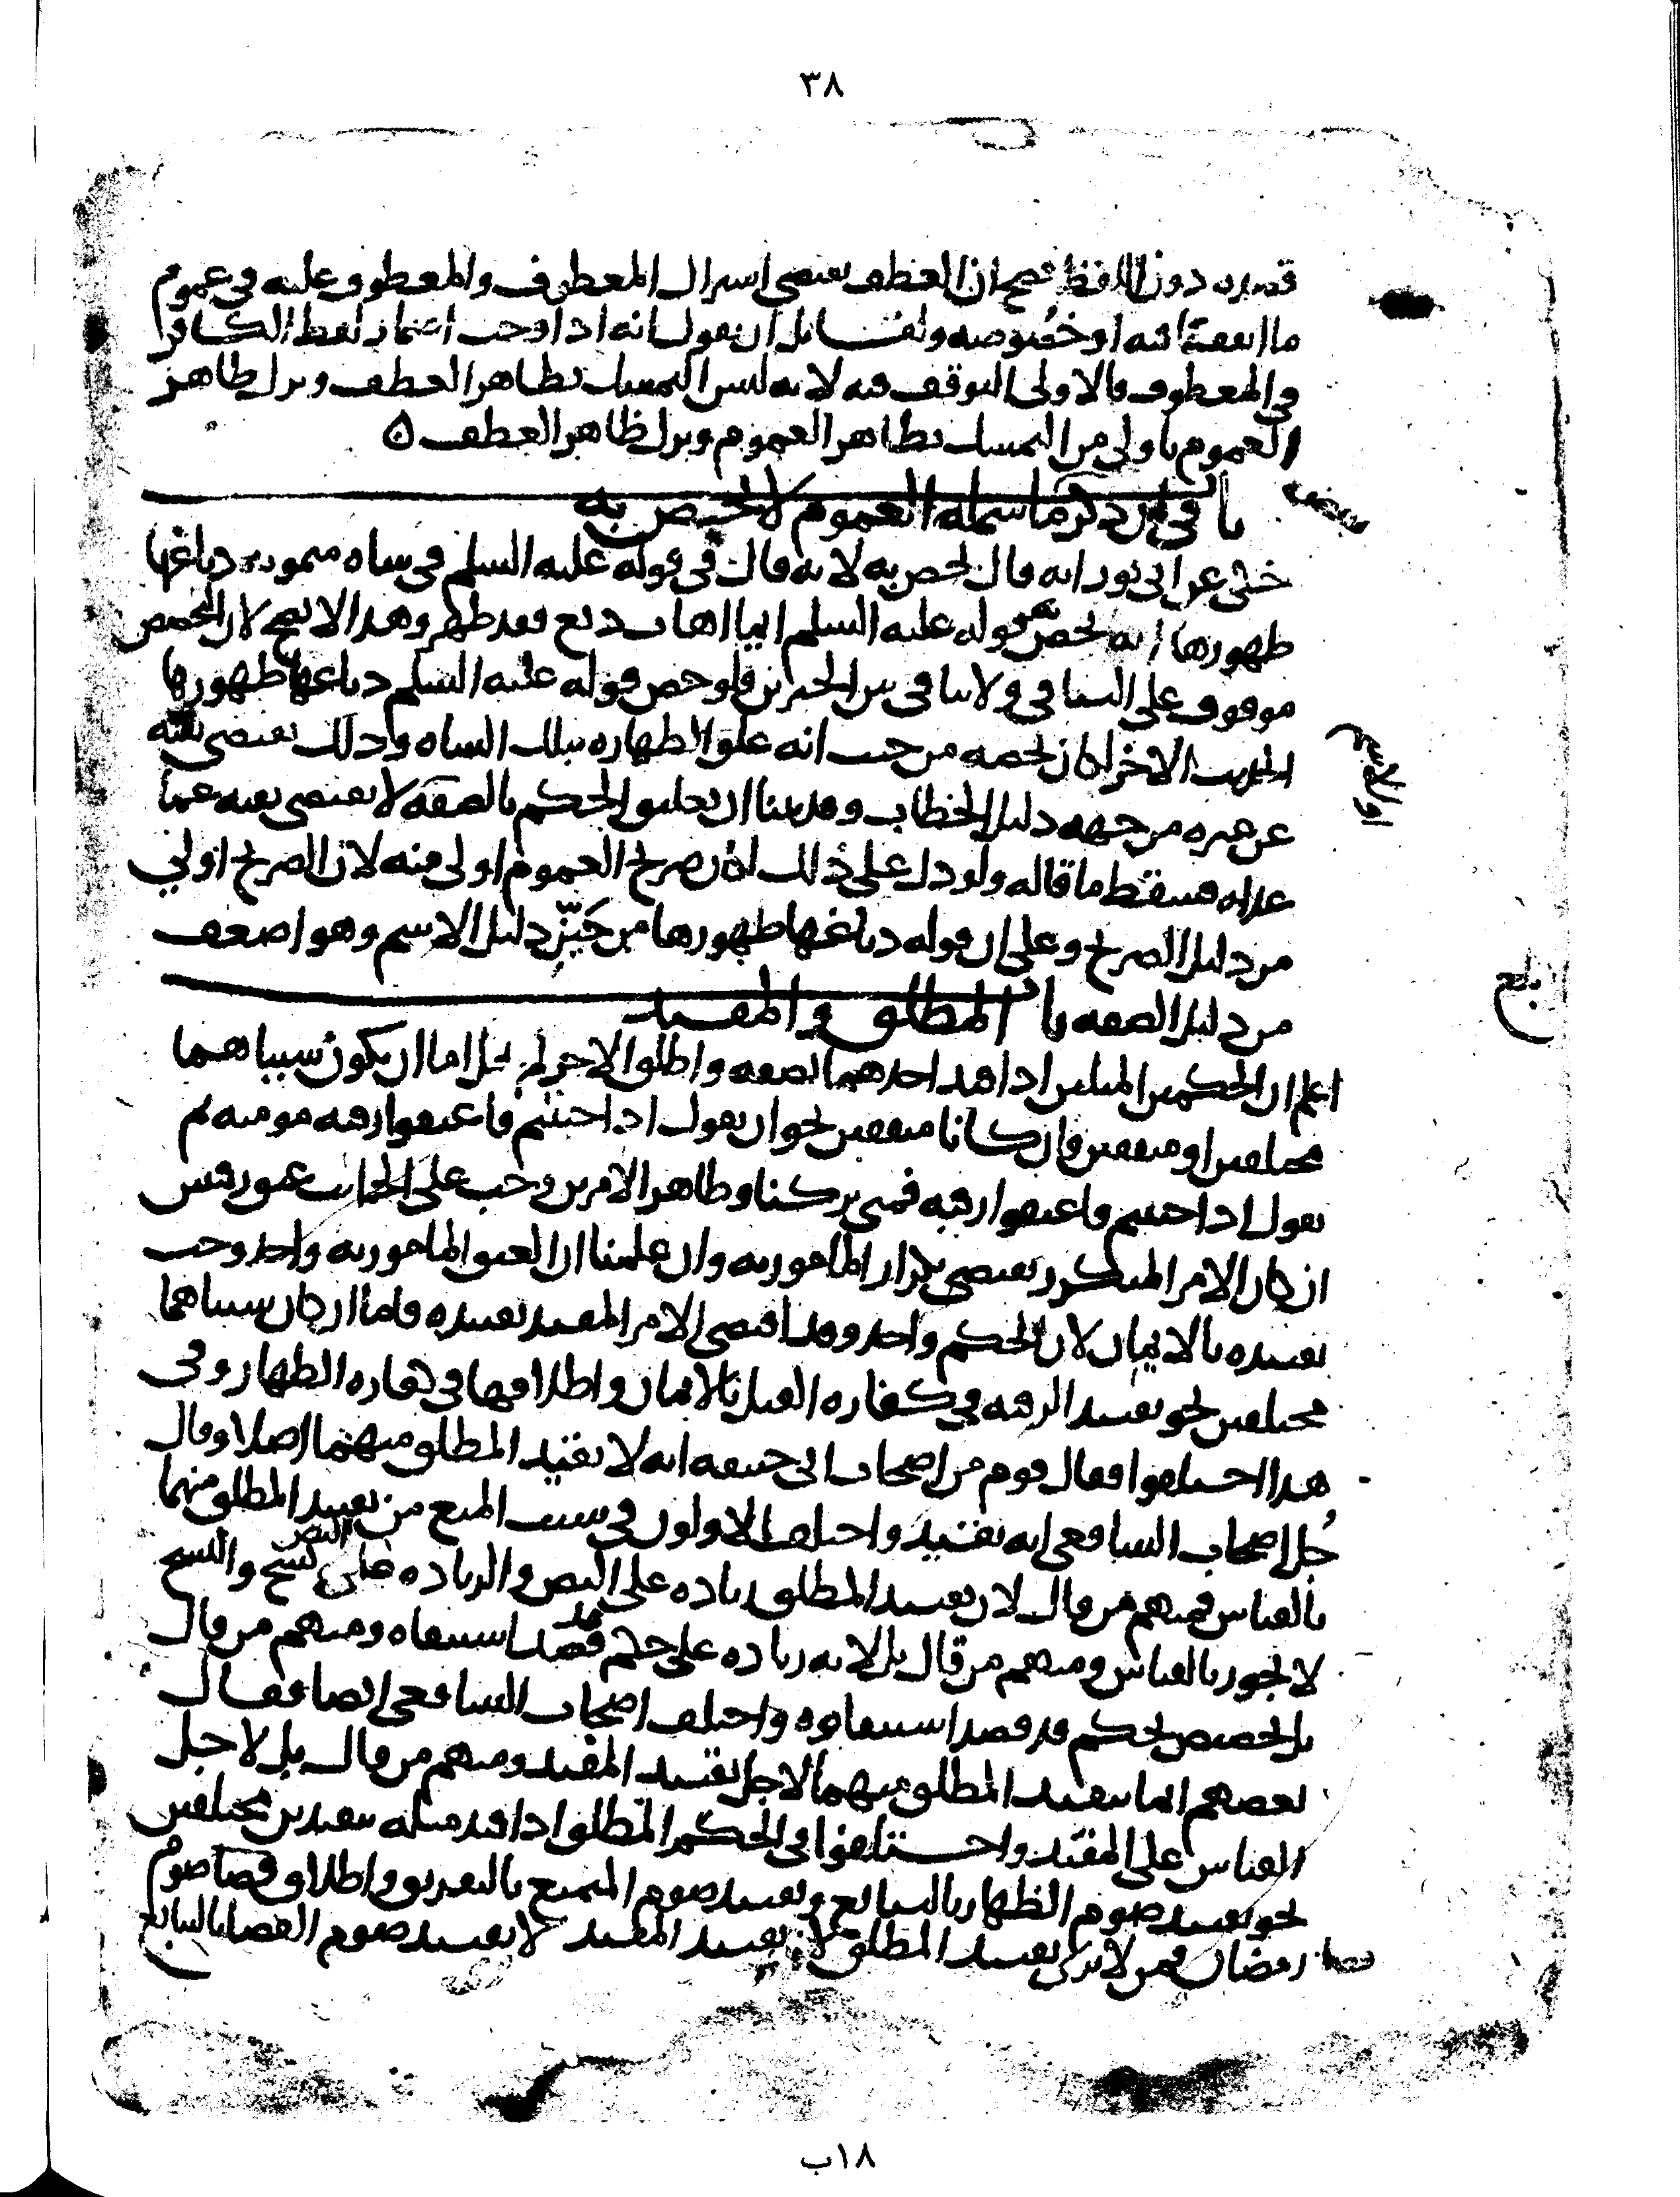 ٣٨
قصده دون اللفظ فصح ان العطف يقتضي اشتراك المعطوف والمعطوف عليه في عموم
ما اتفقا فيه او خصوصه ولقائل ان يقول انه اذا وجب اضمار لفظ الكافر
في المعطوف فالاولى التوقف فيه لانه ليس التمسك بظاهر العطف وترك ظاهر
العموم باولى من التمسك بظاهر العموم وترك ظاهر العطف ه
باب في ان ذكر بعض ما شمله العموم لا يخص به
حكي عن ابي ثور انه قال يخص به لانه قال في قوله عليه السلم في شاه ميمونه دباغها
طهورها انه يخص به قوله عليه السلم ايما اهاب دبغ فقد طهر وهذا لا يصح لان التخصيص
موقوف على التنافي ولا تنافي بين الخبرين فلو خص قوله عليه السلم دباغها طهورها
الحديث الاخر لكان يخصه من حيث انه علق الطهاره بتلك الشاه وذلك يقتضي نفيه
عن غيره من جهه دليل الخطاب وقد بينا ان تعليق الحكم بالصفه او الاسم لا يقتضي نفيه عما
عداه فسقط ما قاله ولو دل على ذلك لكان صريح العموم اولى منه لان الصريح اولى
من دليل الصريح وعلى ان قوله دباغها طهورها من حيّز دليل الاسم وهو اضعف
بلغ
من دليل الصفه باب المطلق والمقيد
اعلم ان الحكمين المثلين اذا قيد احدهما بصفه واطلق الاخر لم يخل اما ان يكون سبباهما
مختلفين او متفقين فان كانا متفقين نحو ان يقول اذا حنثتم فاعتقوا رقبه مومنه ثم
يقول اذا حنثتم فاعتقوا رقبه فمتى تركنا وظاهر الامرين وجب على الحانث عتق رقبتين
ان كان الامر المتكرر يقتضي تكرار المامور به وان علمنا ان العتق المامور به واحد وجب
تقييده بالايمان لان الحكم واحد وقد اقتضى الامر المقيد تقييده فاما ان كان سبباهما
مختلفين نحو تقييد الرقبه في كفاره القتل بالايمان واطلاقها في كفاره الظهار وفي
هذا اختلفوا فقال قوم من اصحاب ابي حنيفه انه لا يقيد المطلق منهما اصلا وقال
جُل اصحاب الشافعي انه يقيد واختلف الاولون في سبب المنع من تقييد المطلق منهما
بالقياس فمنهم من قال لان تقييد المطلق زياده على النص والزياده على النص نسخ والنسخ
لا يجوز بالقياس ومنهم من قال بل لانه زياده على حكم قد قصد استيفاه ومنهم من قال
بل تخصيص لحكم قد قصد استيفاوه واختلف اصحاب الشافعي ايضا فقال
بعضهم انما يقيد المطلق منهما لاجل تقييد المقيد ومنهم من قال بل لاجل
القياس على المقيد واختلفوا في الحكم المطلق اذا قيد مثله بقيدين مختلفين
نحو تقييد صوم الظهار بالتتابع وتقييد صوم التمتع بالتفريق واطلاق قضا صوم
رمضان فمن لا يرى تقييد المطلق لان تقييد المقيد لا يقيد صوم القضا بالتتابع
قضا
١٨ب